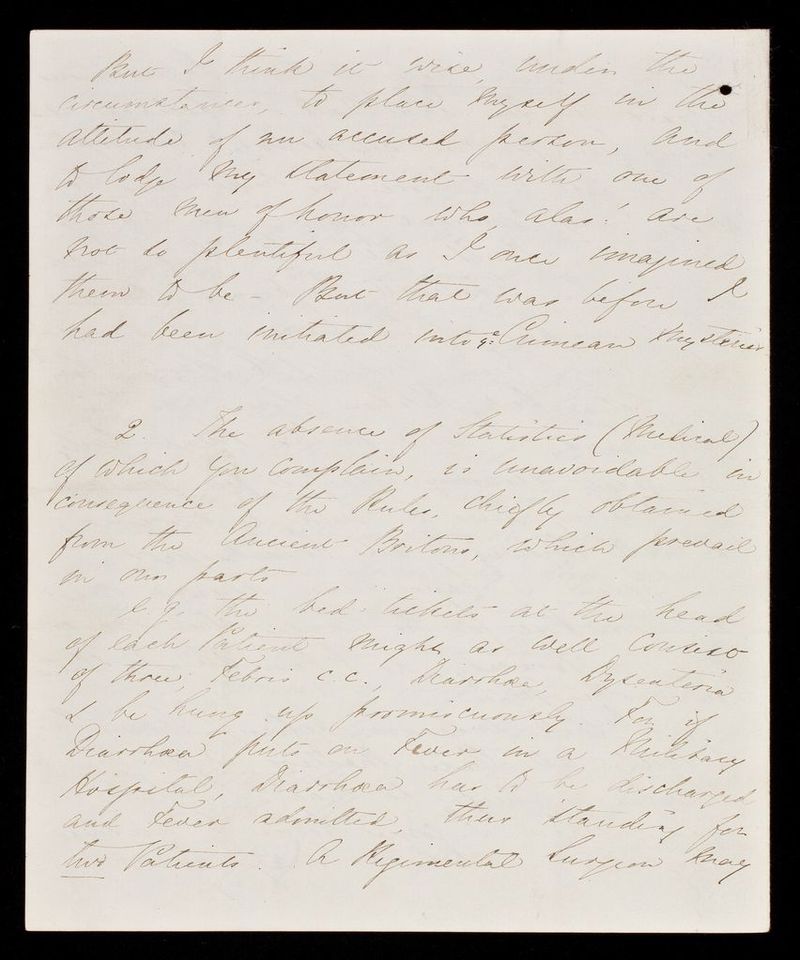 But I think it wise, under the
circumstances, to place myself in the
attitude of an accused person, and
to lodge my statement with one of
those men of honor who, alas! are
not so plentiful as I once imagined
them to be – But that was before I
had been initiated into ye Crimean mysteries

2. The absence of Statistics (Medical)
of which you complain, is unavoidable in
consequence of the Rules, chiefly obtained
from the Ancient Britons, which prevail
in our parts
e.g. the bed-tickets at the head
of each Patient might as well consist
of three, Febris c.c., Diarrhœa, Dysenteria
& be hung up promiscuously. For if
Diarrhœa puts on Fever in a Military
Hospital, Diarrhœa has to be discharged
and Fever admitted, thus standing for
two Patients. A Regimental Surgeon may